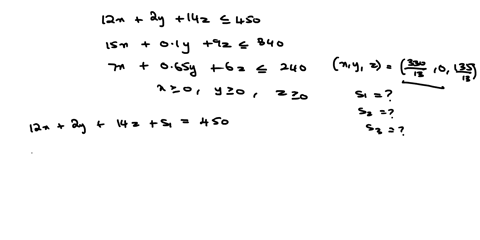 12x + 2y + 14z ≤ 450
15x + 0.1y + 9z ≤ 840
7x + 0.65y + 6z ≤ 240
x ≥ 0, y ≥ 0, z ≥ 0
(x, y, z) = (330/13, 0, 135/13)
S₁ = ?
S₂ = ?
S₃ = ?
12x + 2y + 14z + S₁ = 450